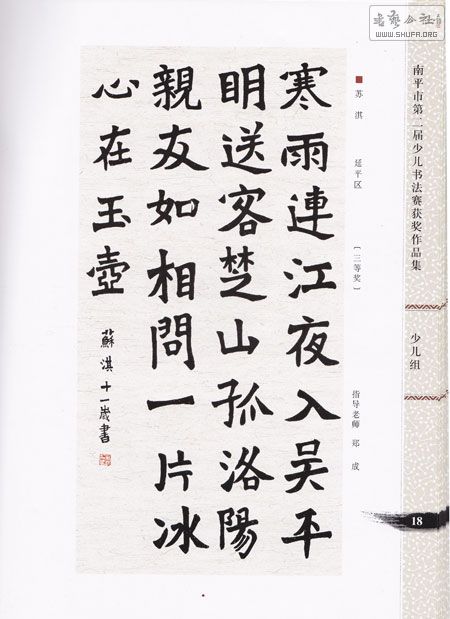 书艺公社
WWW.SHUFA.ORG
南平市第二届少儿书法赛获奖作品集
少儿组
18
苏淇 延平区 （三等奖） 指导老师 郑成
寒雨連江夜入吴平
明送客楚山孤洛陽
親友如相問一片冰
心在玉壺
蘇淇十一歲書